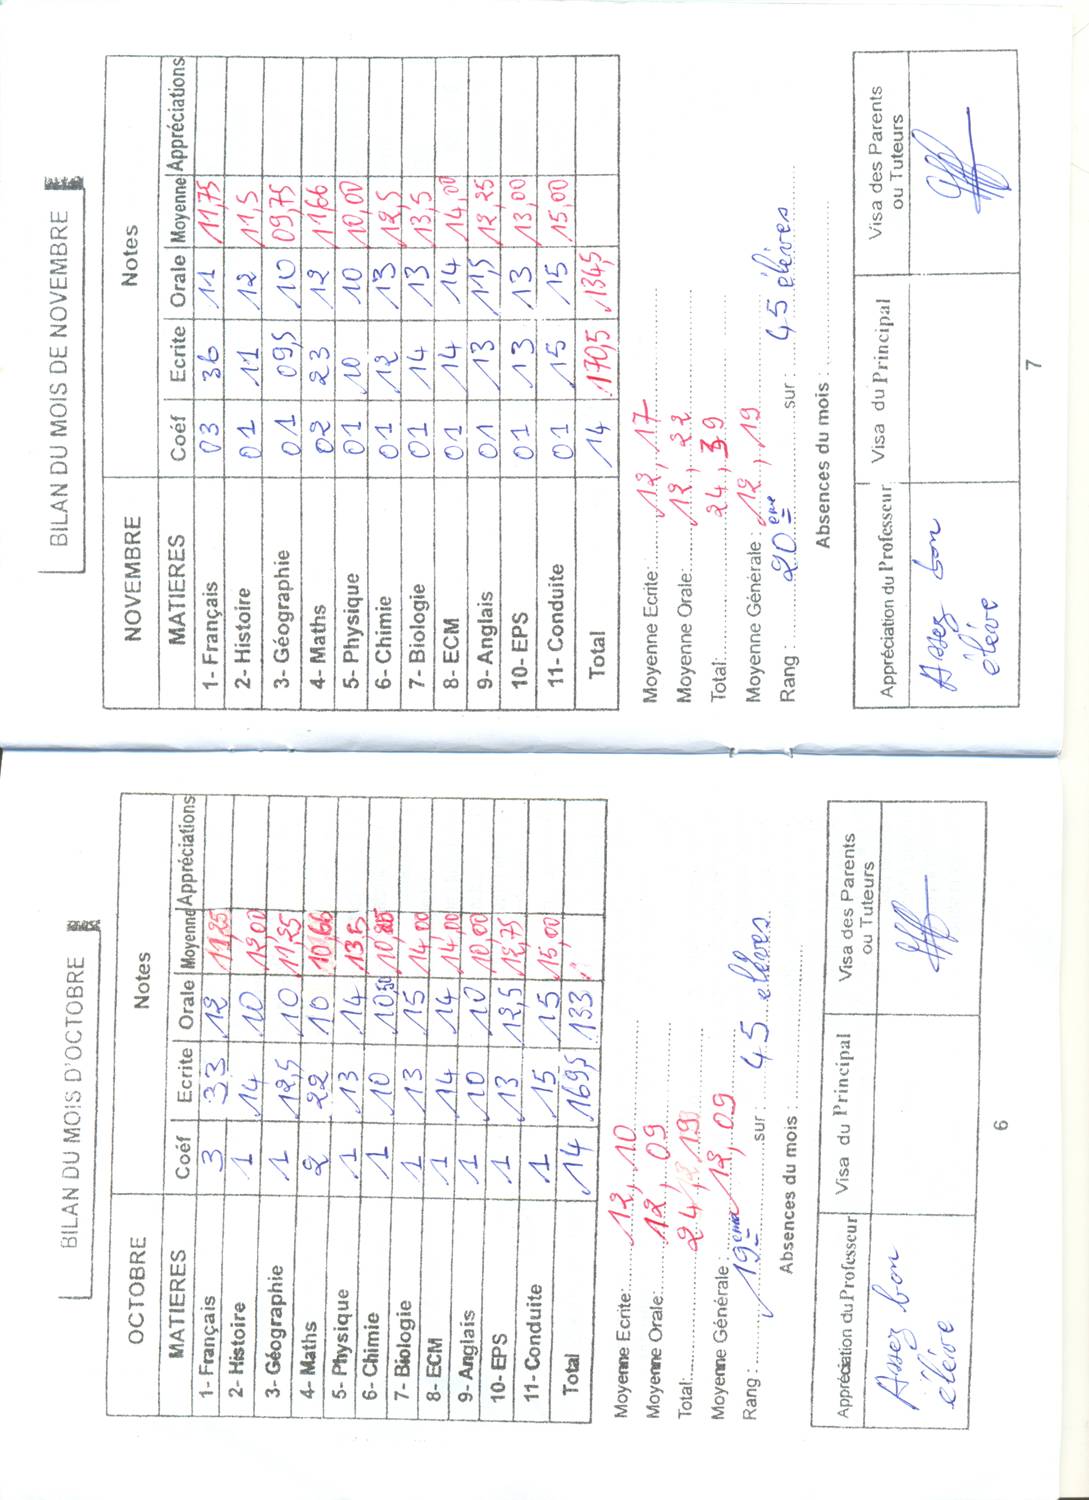 BILAN DU MOIS D'OCTOBRE
OCTOBRE Notes
MATIERES Coéf Ecrite Orale Moyenne Appréciations
1- Français 3 33 12 11,25
2- Histoire 1 14 10 12,00
3- Géographie 1 12,5 10 11,25
4- Maths 2 22 10 10,66
5- Physique 1 13 14 13,5
6- Chimie 1 10 10,50
7- Biologie 1 13 15 14,00
8- ECM 1 14 14 14,00
9- Anglais 1 10 10 10,00
10- EPS 1 13 12,5 12,75
11- Conduite 1 15 15 15,00
Total 14 169,5 133
Moyenne Ecrite: 12,10
Moyenne Orale: 12,09
Total: 24,19
Moyenne Générale: 12,09
Rang : 19ème sur : 45 élèves
Absences du mois :
Appréciation du Professeur Visa du Principal Visa des Parents
ou Tuteurs
Assez bon
élève
6
BILAN DU MOIS DE NOVEMBRE
NOVEMBRE Notes
MATIERES Coéf Ecrite Orale Moyenne Appréciations
1- Français 03 36 11 11,75
2- Histoire 01 11 12 11,5
3- Géographie 01 09,5 10 09,75
4- Maths 02 23 12 11,66
5- Physique 01 10 10 10,00
6- Chimie 01 12 13 12,5
7- Biologie 01 14 13 13,5
8- ECM 01 14 14 14,00
9- Anglais 01 13 11,5 12,25
10- EPS 01 13 13 13,00
11- Conduite 01 15 15 15,00
Total 14 170,5 134,5
Moyenne Ecrite: 12,17
Moyenne Orale: 12,22
Total: 24,39
Moyenne Générale : 12,19
Rang : 20ème sur : 45 élèves
Absences du mois :
Appréciation du Professeur Visa du Principal Visa des Parents
ou Tuteurs
Assez bon
élève
7